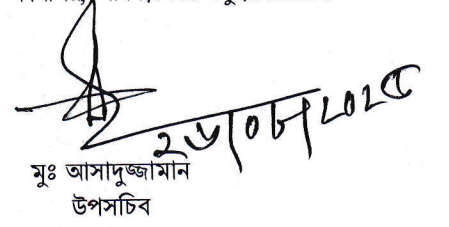 ২৬/০৮/২০২৫
মুঃ আসাদুজ্জামান
উপসচিব